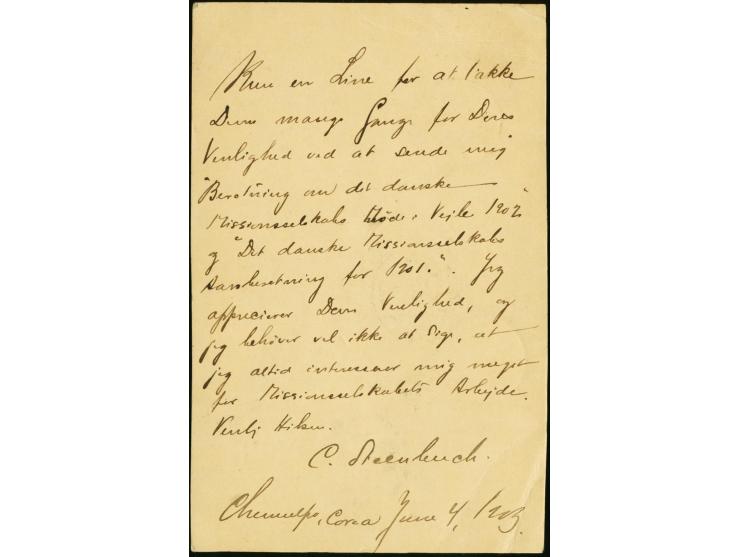 Kun en Line for at takke
Dem mange Gange for Deres
Venlighed ved at sende mig
"Beretning om det danske
Missionsselskabs Møde i Vejle 1902"
og "Det danske Missionsselskabs
Aarsberetning for 1901.". Jeg
appreciever Deres Venlighed, og
jeg behøver vel ikke at sige, at
jeg altid interesserer mig meget
for Missionsselskabets Arbejde.
Venlig Hilsen.
C. Steenbuch.
Chemulpo, Corea June 4, 1903.